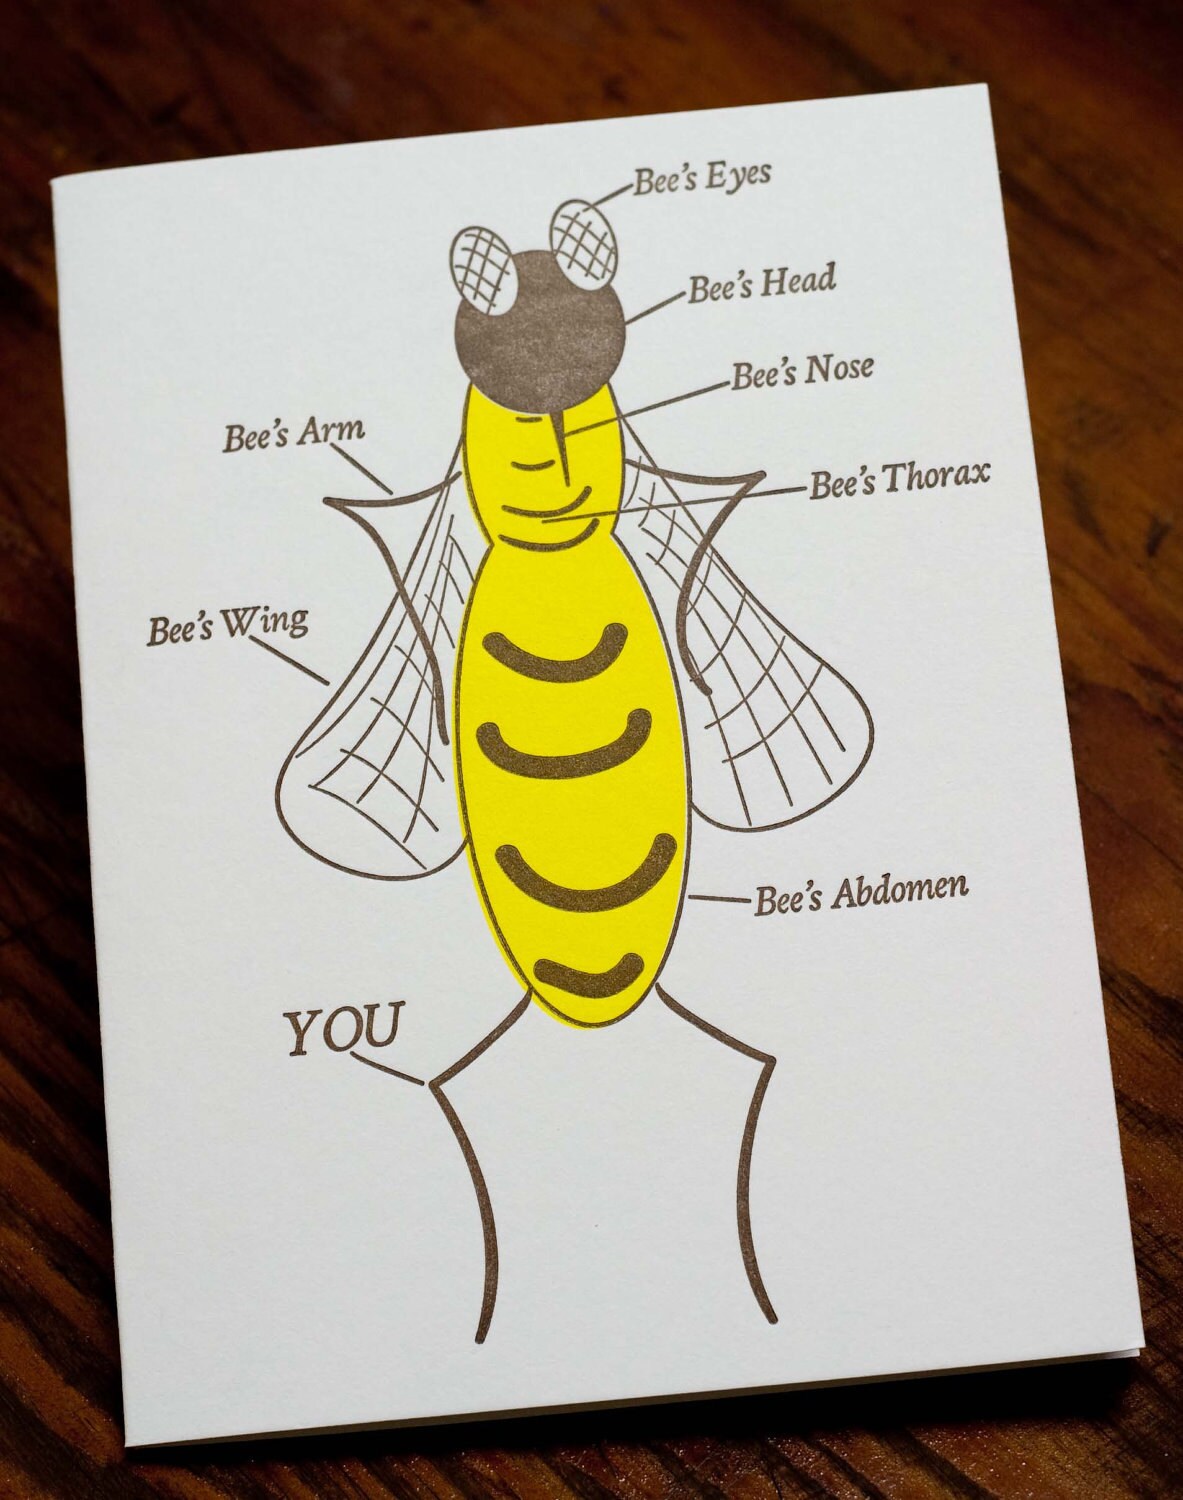 Bee's Eyes
Bee's Head
Bee's Nose
Bee's Arm
Bee's Thorax
Bee's Wing
Bee's Abdomen
YOU